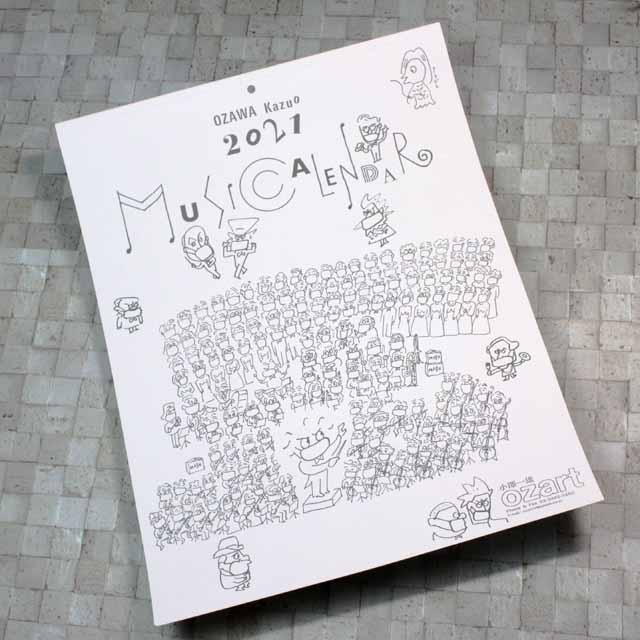 OZAWA Kazuo
2021
MUSICALENDAR
小澤一雄
ozart